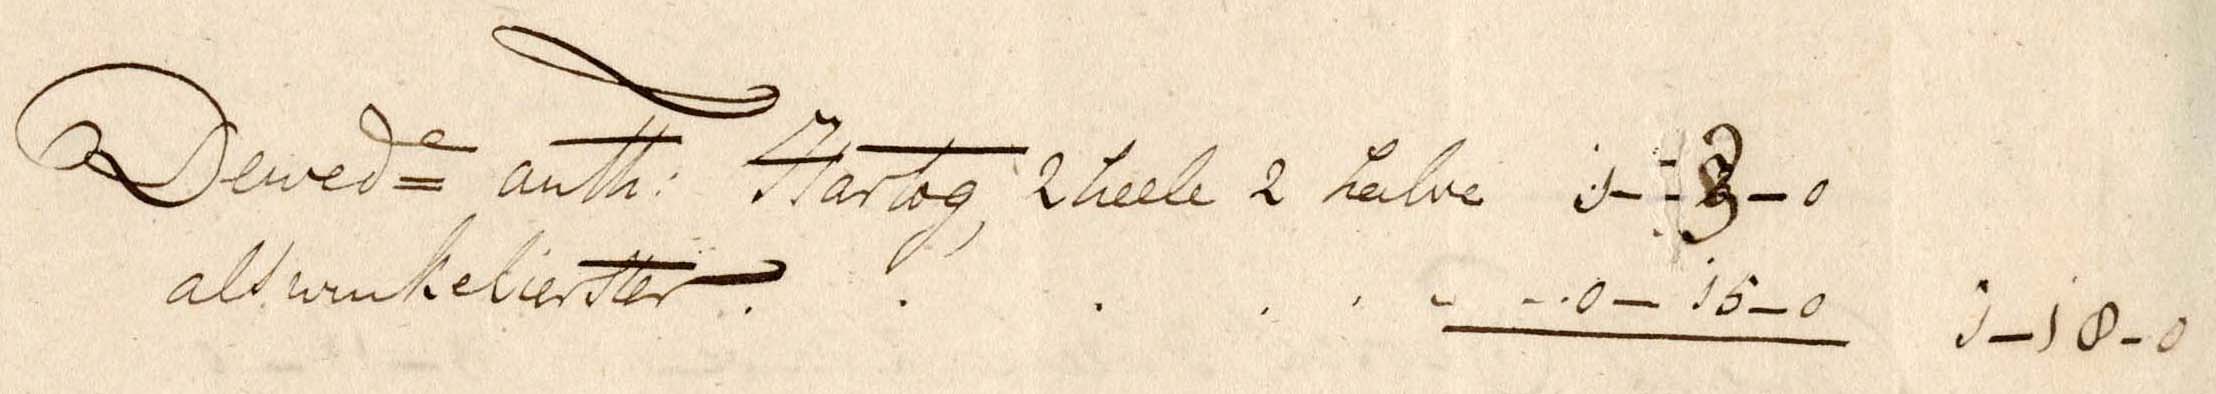 De wed=e anth: Hartog, 2 heele 2 halve 1 - 3 - 0
als winkelierster . . . . . - 0 - 15 - 0 1 - 18 - 0